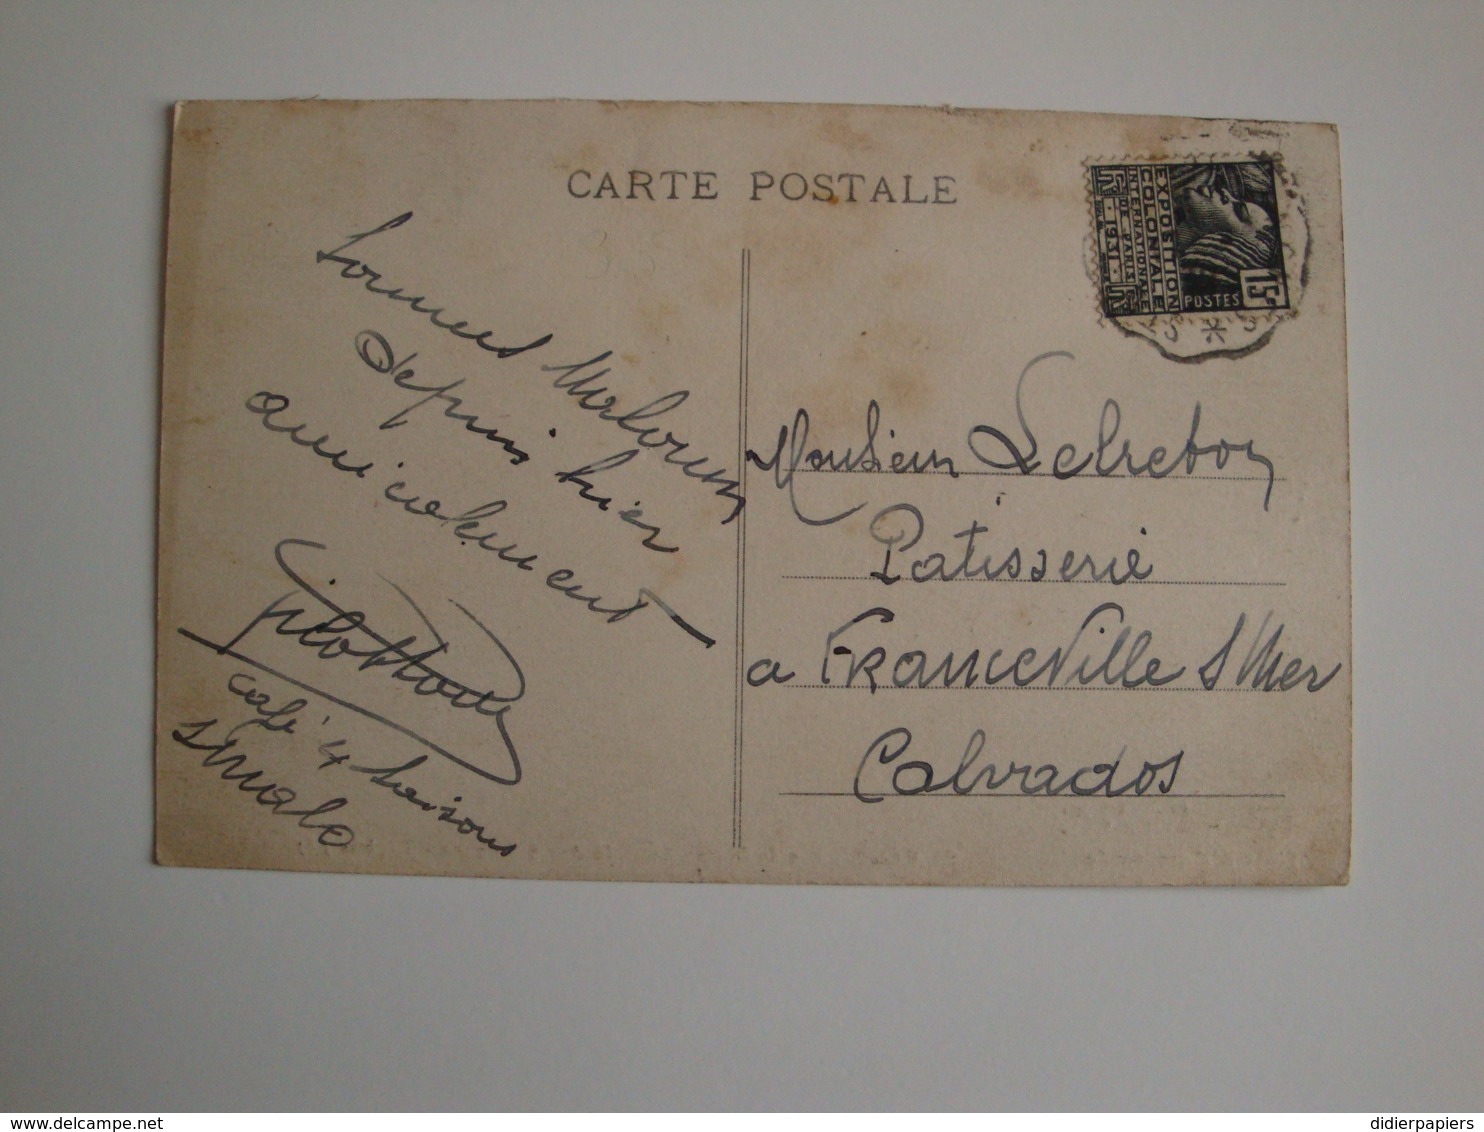 CARTE POSTALE
EXPOSITION
COLONIALE
INTERNATIONALE
DE PARIS
1931
POSTES
15c
Sommes Malouin
depuis hier
amicalement
café 4 saisons
S Malo
Monsieur Lebreton
Patisserie
a Franceville s/Mer
Calvados
delcampe.net
didierpapiers